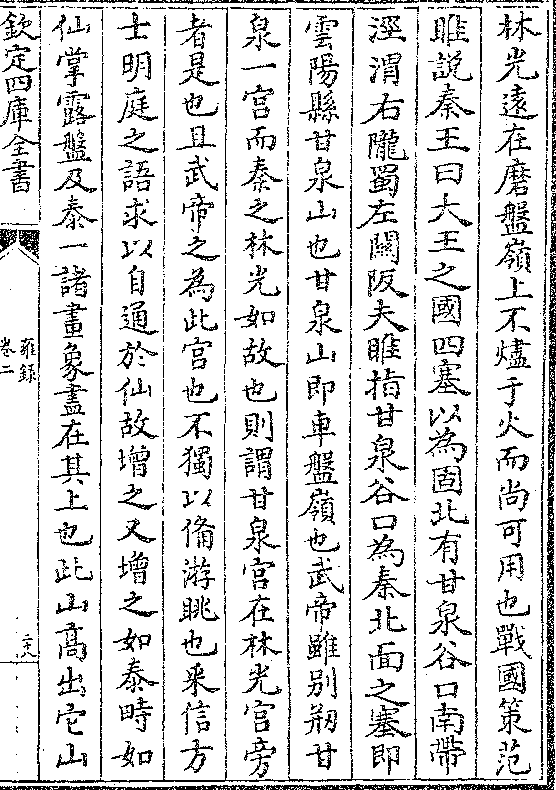 林光遠在磨盤嶺上不燼于火而尚可用也戰國策范
睢説秦王曰大王之國四塞以為固北有甘泉谷口南帶
涇渭右隴蜀左關阪夫睢指甘泉谷口為秦北面之塞即
雲陽縣甘泉山也甘泉山即車盤嶺也武帝雖别剏甘
泉一宫而秦之林光如故也則謂甘泉宫在林光宫旁
者是也且武帝之為此宫也不獨以備游眺也采信方
士明庭之語求以自通於仙故增之又增之如泰畤如
仙掌露盤及泰一諸畫象盡在其上也此山髙出它山
欽定四庫全書
雍録
卷二